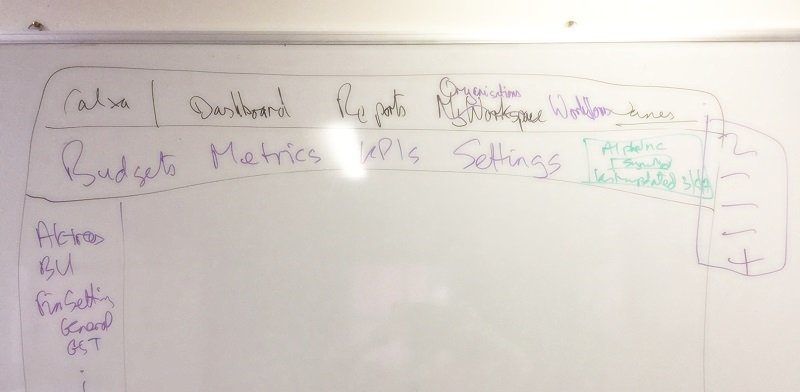 Calxa | Dashboard Reports Organisations My Workspace Workflows
Budgets Metrics KPIs Settings
Alpha Inc
last updated 3/09
BU
Fin Setting
General
GST
+